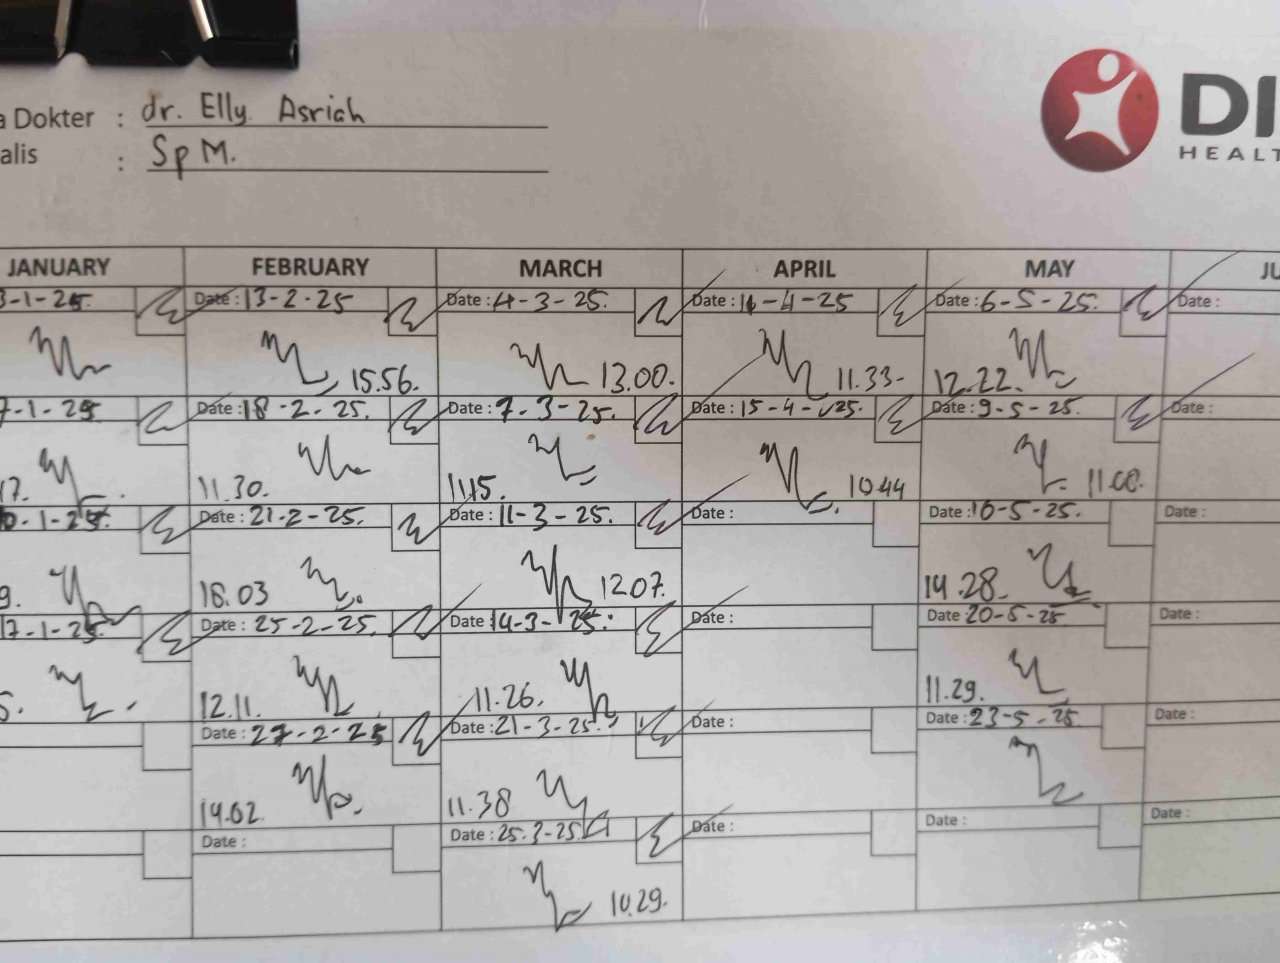 a Dokter : dr. Elly Asriah
alis : Sp M.
DI
HEALT
JANUARY FEBRUARY MARCH APRIL MAY JU
3-1-25 Date : 13-2-25 Date : 4-3-25. Date : 11-4-25 Date : 6-5-25. Date :
15.56. 13.00. 11.33- 12.22.
7-1-25 Date : 18-2-25. Date : 7-3-25. Date : 15-4-25. Date : 9-5-25. Date :
17. 11.30. 11.15. 10.44 11.00.
0-1-25. Date : 21-2-25. Date : 11-3-25. Date : Date : 16-5-25. Date :
9. 18.03 12.07. 14.28.
17-1-25 Date : 25-2-25. Date : 14-3-25. Date : Date : 20-5-25 Date :
5. 12.11. 11.26. 11.29.
Date : 27-2-25 Date : 21-3-25. Date : Date : 23-5-25 Date :
14.02. 11.38
Date : Date : 25-3-25 Date : Date : Date :
10.29.